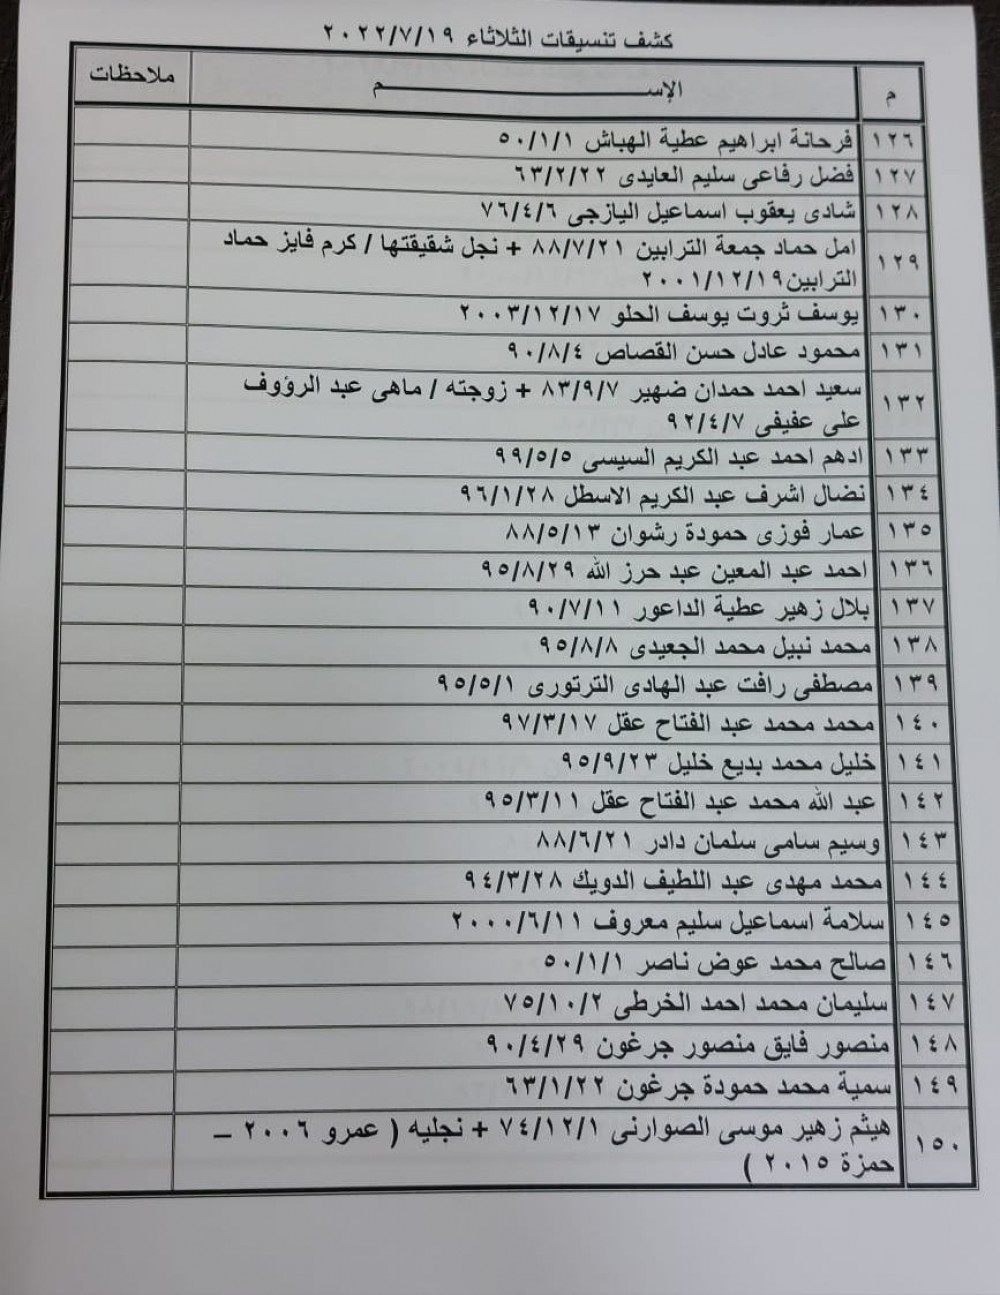 كشف تنسيقات الثلاثاء ٢٠٢٢/٧/١٩
م الإســـــــــم ملاحظات
١٢٦ فرحانة ابراهيم عطية الهباش ٥٠/١/١
١٢٧ فضل رفاعى سليم العايدى ٦٣/٢/٢٢
١٢٨ شادى يعقوب اسماعيل اليازجى ٧٦/٤/٦
١٢٩ امل حماد جمعة الترابين ٨٨/٧/٢١ + نجل شقيقتها / كرم فايز حماد
الترابين ٢٠٠١/١٢/١٩
١٣٠ يوسف ثروت يوسف الحلو ٢٠٠٣/١٢/١٧
١٣١ محمود عادل حسن القصاص ٩٠/٨/٤
١٣٢ سعيد احمد حمدان ضهير ٨٣/٩/٧ + زوجته / ماهى عبد الرؤوف
على عفيفى ٩٢/٤/٧
١٣٣ ادهم احمد عبد الكريم السيسى ٩٩/٥/٥
١٣٤ نضال اشرف عبد الكريم الاسطل ٩٦/١/٢٨
١٣٥ عمار فوزى حمودة رشوان ٨٨/٥/١٣
١٣٦ احمد عبد المعين عبد حرز الله ٩٥/٨/٢٩
١٣٧ بلال زهير عطية الداعور ٩٠/٧/١١
١٣٨ محمد نبيل محمد الجعيدى ٩٥/٨/٨
١٣٩ مصطفى رافت عبد الهادى الترتورى ٩٥/٥/١
١٤٠ محمد محمد عبد الفتاح عقل ٩٧/٣/١٧
١٤١ خليل محمد بديع خليل ٩٥/٩/٢٣
١٤٢ عبد الله محمد عبد الفتاح عقل ٩٥/٣/١١
١٤٣ وسيم سامى سلمان دادر ٨٨/٦/٢١
١٤٤ محمد مهدى عبد اللطيف الدويك ٩٤/٣/٢٨
١٤٥ سلامة اسماعيل سليم معروف ٢٠٠٠/٦/١١
١٤٦ صالح محمد عوض ناصر ٥٠/١/١
١٤٧ سليمان محمد احمد الخرطى ٧٥/١٠/٢
١٤٨ منصور فايق منصور جرغون ٩٠/٤/٢٩
١٤٩ سمية محمد حمودة جرغون ٦٣/١/٢٢
١٥٠ هيثم زهير موسى الصوارنى ٧٤/١٢/١ + نجليه ( عمرو ٢٠٠٦ –
حمزة ٢٠١٥ )